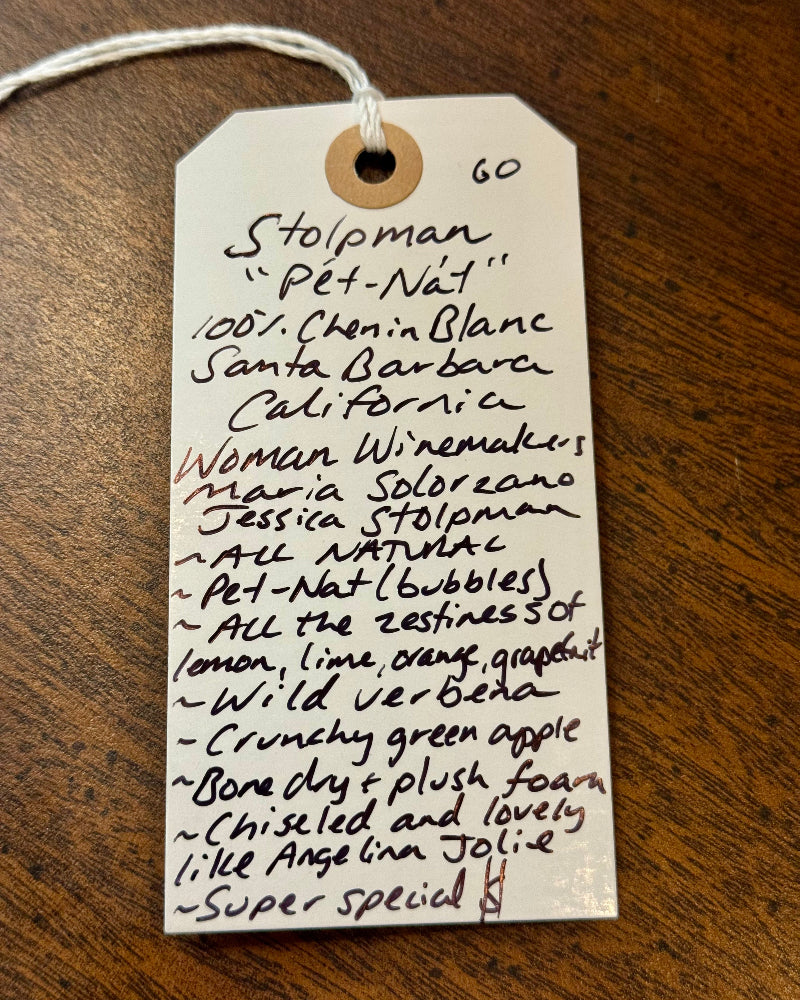 60
Stolpman
"Pét-Nát"
100% Chenin Blanc
Santa Barbara
California
Woman Winemakers
Maria Solorzano
Jessica Stolpman
~ALL NATURAL
~Pet-Nat (bubbles)
~ALL the zestiness of
lemon, lime, orange, grapefruit
~Wild verbena
~Crunchy green apple
~Bone dry + plush foam
~Chiseled and lovely
like Angelina Jolie
~Super special $